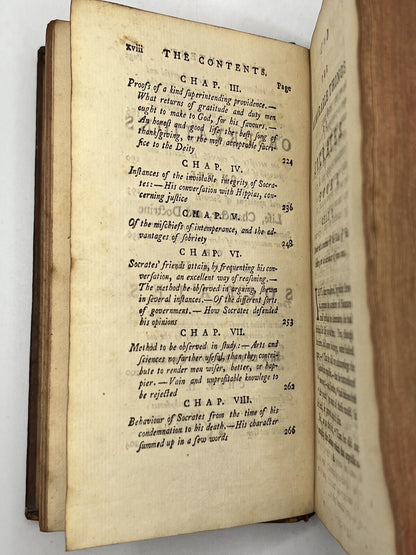 xviii THE CONTENTS.
CHAP. III. Page
Proofs of a kind superintending providence. —
What returns of gratitude and duty men
ought to make to God, for his favours. —
An honest and good life, the best song of
thanksgiving, or the most acceptable sacri-
fice to the Deity 224
CHAP. IV.
Instances of the inviolable integrity of Socra-
tes: — His conversation with Hippias, con-
cerning justice 236
CHAP. V.
Of the mischiefs of intemperance, and the ad-
vantages of sobriety 248
CHAP. VI.
Socrates' friends attain, by frequenting his con-
versation, an excellent way of reasoning. —
The method he observed in arguing, shewn
in several instances. — Of the different sorts
of government. — How Socrates defended
his opinions 253
CHAP. VII.
Method to be observed in study: — Arts and
sciences no further useful, than they contri-
bute to render men wiser, better, or hap-
pier. — Vain and unprofitable knowlege to
be rejected 262
CHAP. VIII.
Behaviour of Socrates from the time of his
condemnation to his death. — His character
summed up in a few words 266